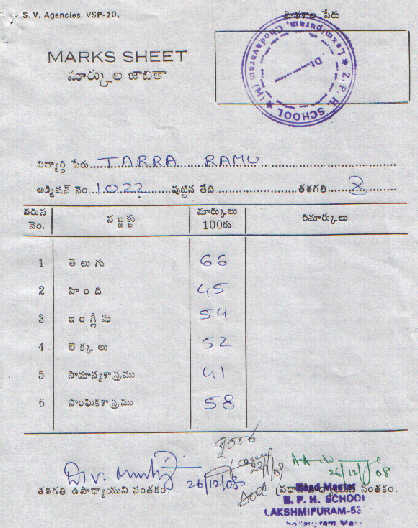 S. V. Agencies, VSP-20.
MARKS SHEET
మార్కుల జాబితా
Z. P. H. SCHOOL
విద్యార్థి పేరు TARRA RAMU
అడ్మిషన్ నెం. 1022 పుట్టిన తేది తరగతి X
వరుస నెం. సబ్జక్టు మార్కులు 100కు రిమార్కులు
1 తెలుగు 66
2 హింది 45
3 ఇంగ్లీషు 54
4 లెక్కలు 52
5 సామాన్యశాస్త్రము 41
6 సాంఘికశాస్త్రము 58
26/12/08
26/12/08
తరగతి ఉపాధ్యాయుని సంతకం.
సంతకం.
Head Master
Z. P. H. SCHOOL
LAKSHMIPURAM-53